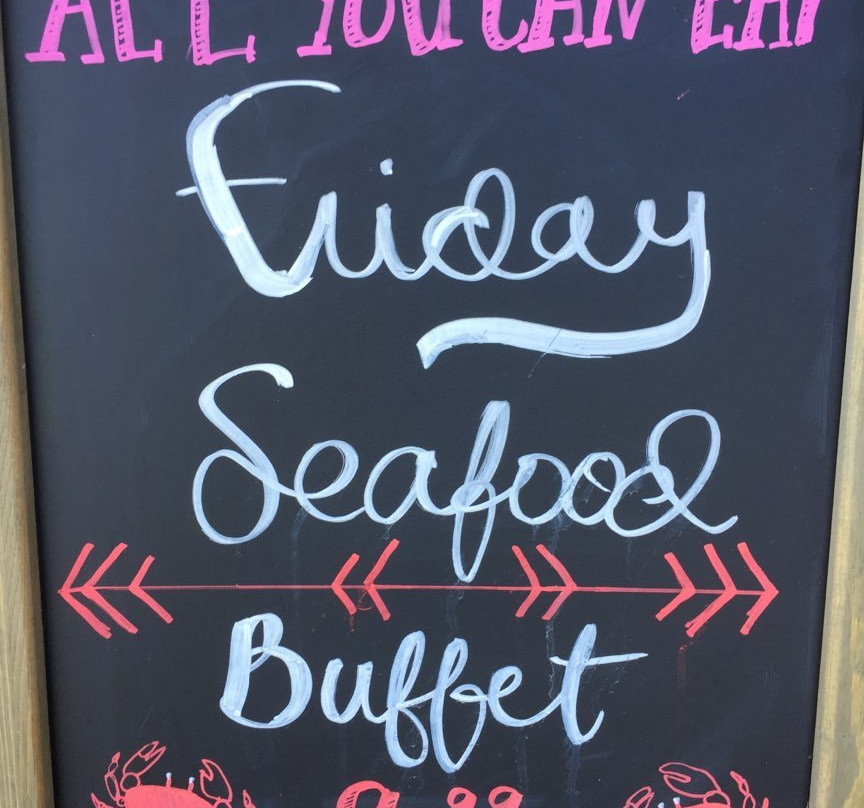 ALL YOU CAN EAT
Friday
Seafood
Buffet